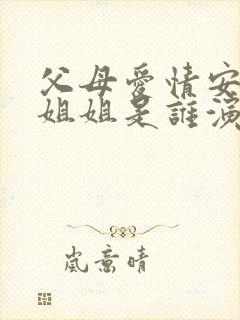 父母爱情安
姐姐是誰演
岚意晴